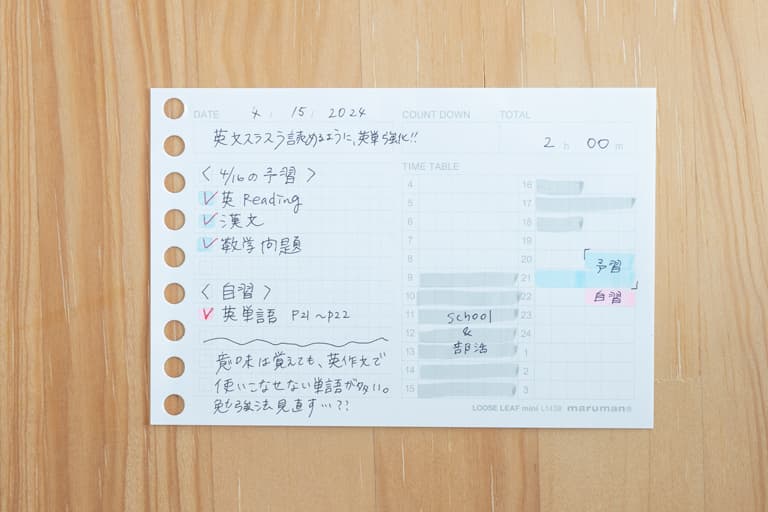 DATE 4 15 2024 COUNT DOWN TOTAL
英文スラスラ読めるように、英単強化!! 2 h 00 m
TIME TABLE
〈 4/16の予習 〉
英 Reading
漢文
数学問題
〈 自習 〉
英単語 P21〜P22
意味は覚えても、英作文で
使いこなせない単語が多い。
勉強法見直す…??
4
5
6
7
8
9
10
11
12
13
14
15
school
&
部活
16
17
18
19
20
21
22
23
24
1
2
3
予習
自習
LOOSE LEAF mini L1438 maruman®